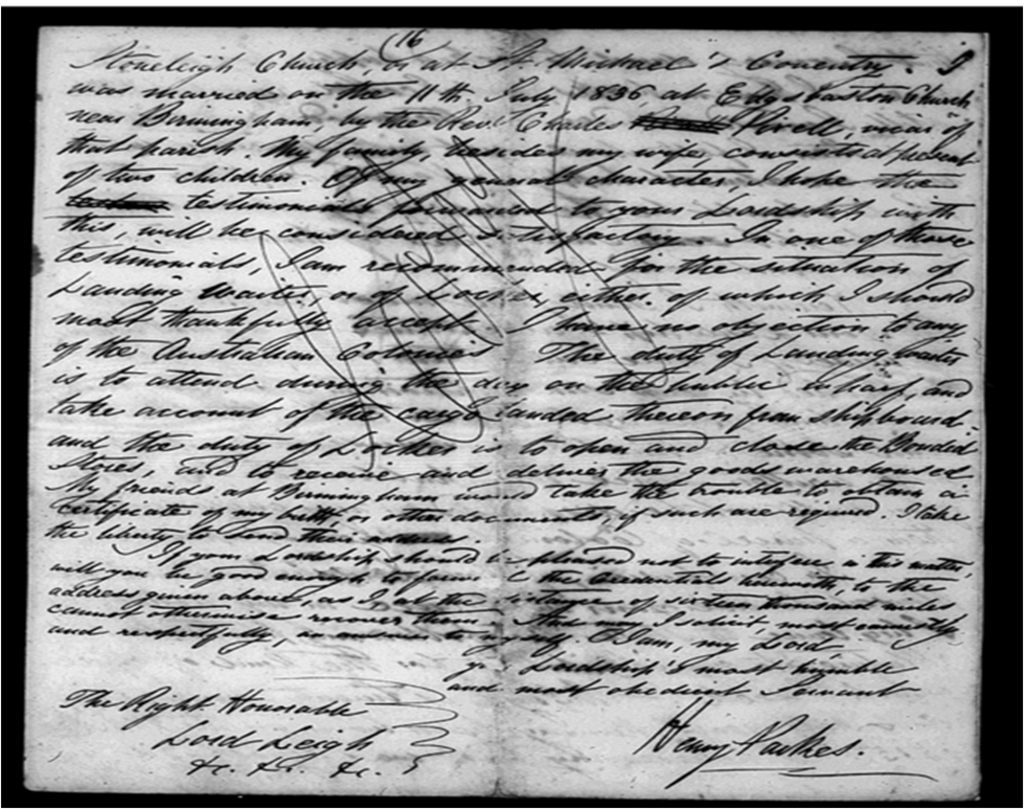 (16
Stoneleigh Church, or at St. Michael's Coventry. I
was married on the 11th July 1836 at Edgbaston Church
near Birmingham, by the Rev. Charles Pixell, vicar of
that parish. My family, besides my wife, consists at present
of two children. Of my general character, I hope the
testimonials to your Lordship with
this, will be considered satisfactory. In one of those
testimonials, I am recommended for the situation of
Landing Waiter, or of Locker, either of which I should
most thankfully accept. I have no objection to any
of the Australian Colonies. The duty of Landing Waiter
is to attend during the day on the public wharf, and
take account of the cargo landed thereon from shipboard.
and the duty of Locker is to open and close the Bonded
Stores, and to receive and deliver the goods warehoused.
My friends at Birmingham would take the trouble to obtain a
certificate of my birth, or other documents, if such are required. I take
the liberty to send their address.
If your Lordship should be pleased not to interfere in this matter,
will you be good enough to forward the credentials herewith, to the
address given above, as I, at the distance of sixteen thousand miles
cannot otherwise recover them. And may I solicit, most earnestly
and respectfully, an answer to myself. I am, my Lord
your Lordship's most humble
and most obedient Servant
Henry Parkes.
The Right Honorable
Lord Leigh
&c. &c. &c.